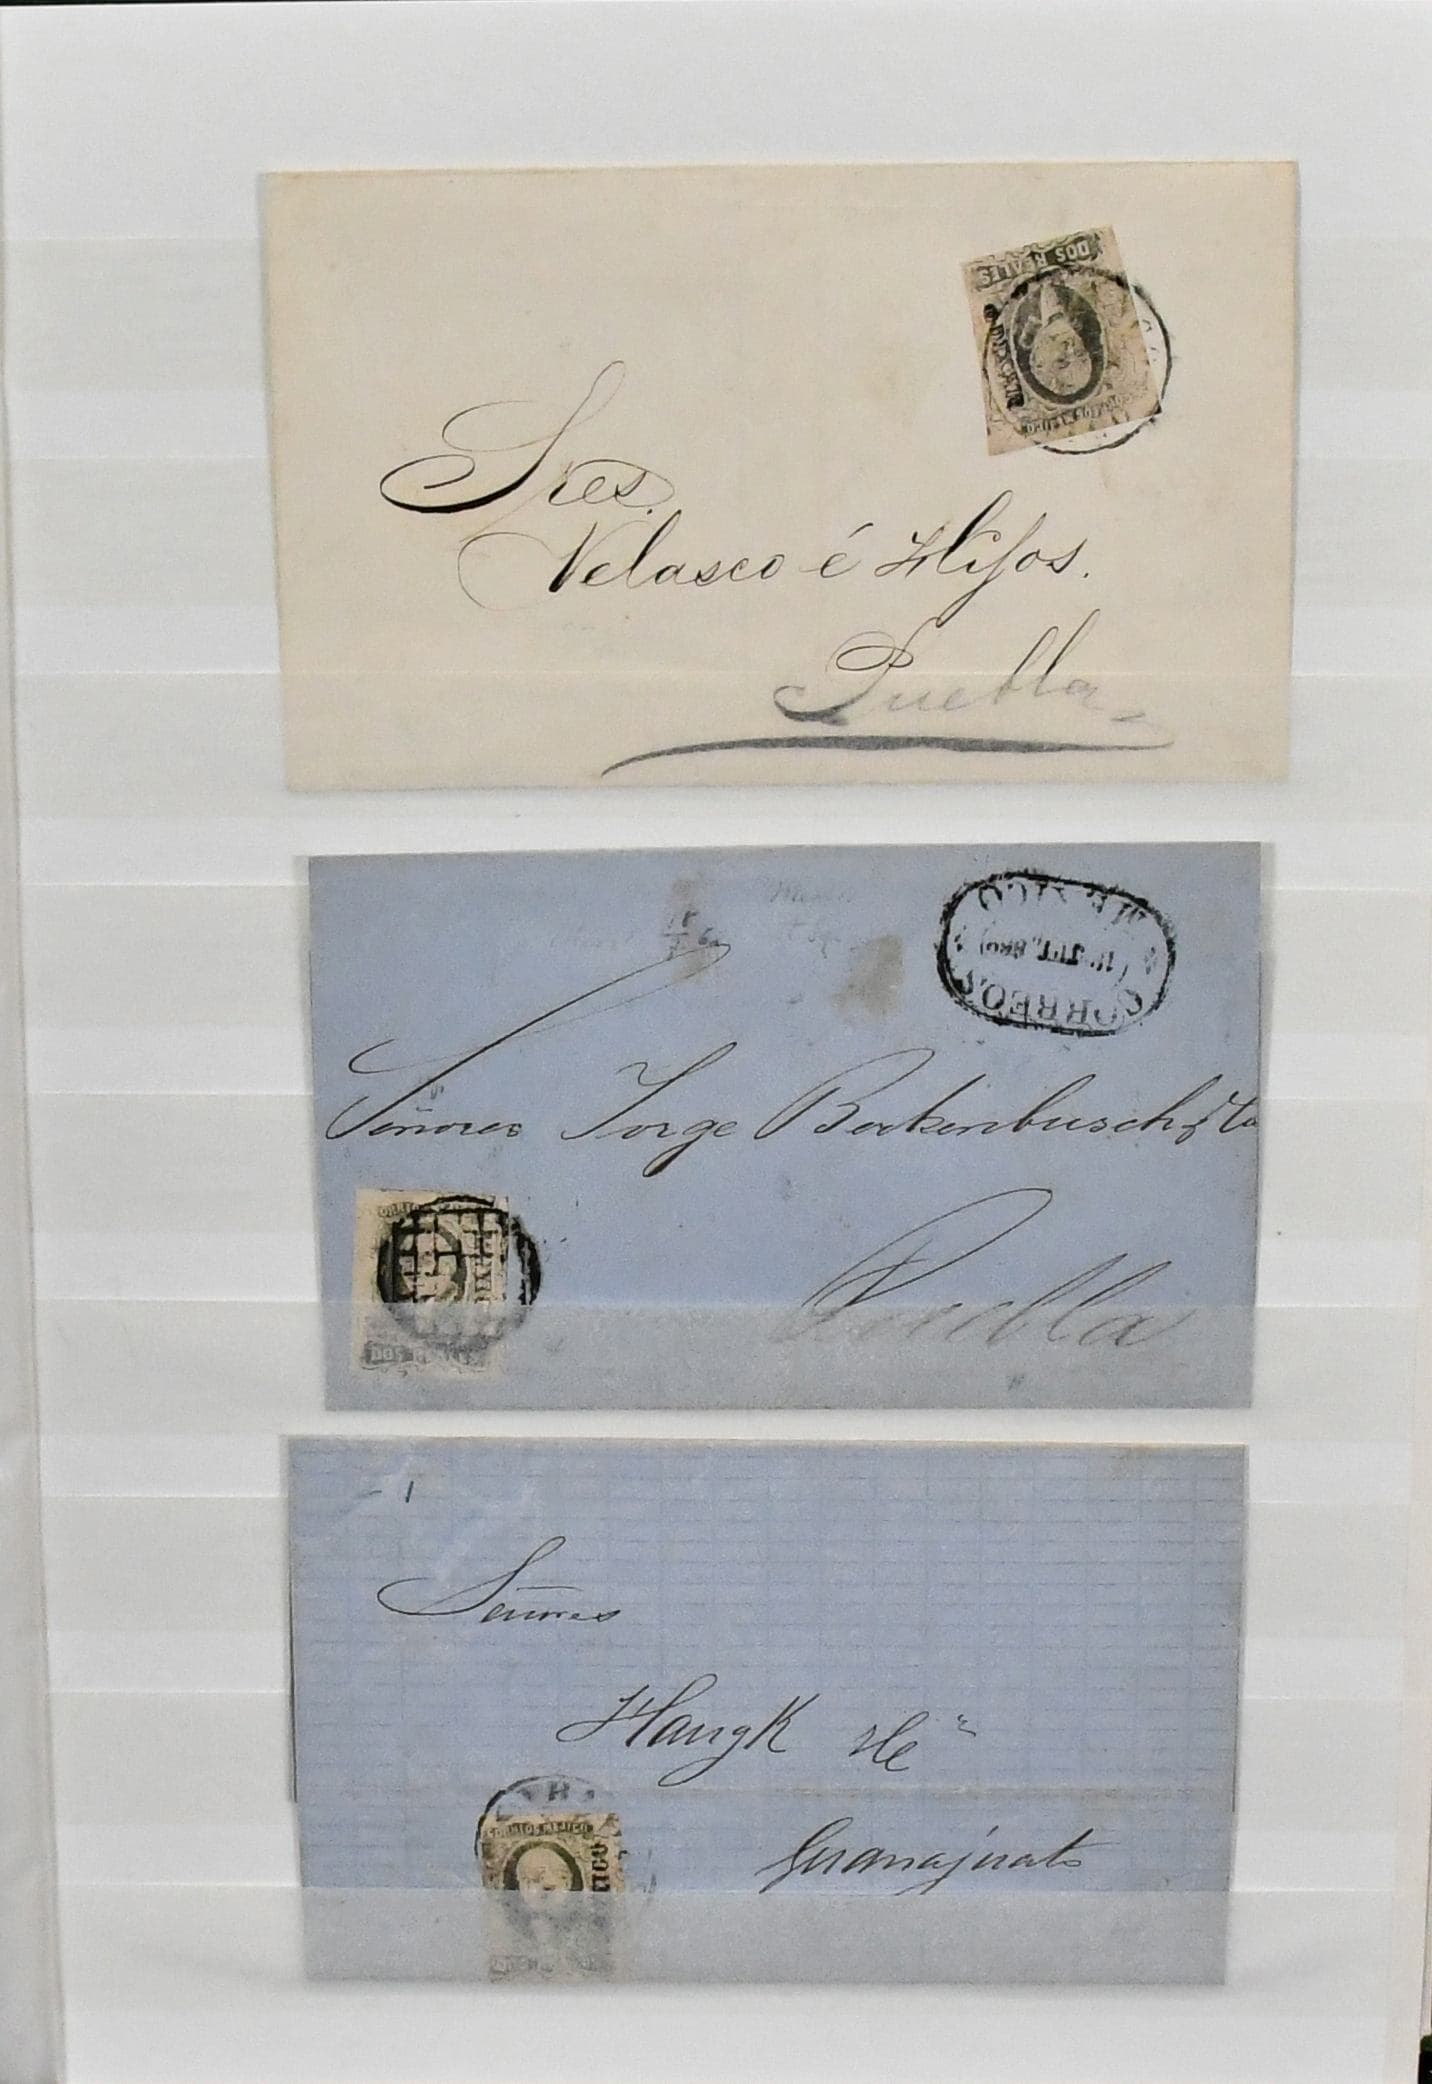 DOS REALES
MEXICO
CORREOS MEJICO
Sres.
Velasco é Hijos.
Puebla
MEXICO
CORREOS
Señores Jorge Berkenbusch y Ca
CORREOS
DOS REALES
Puebla
1
Señores
Haugk
Guanajuato
CORREOS MEJICO
MEXICO